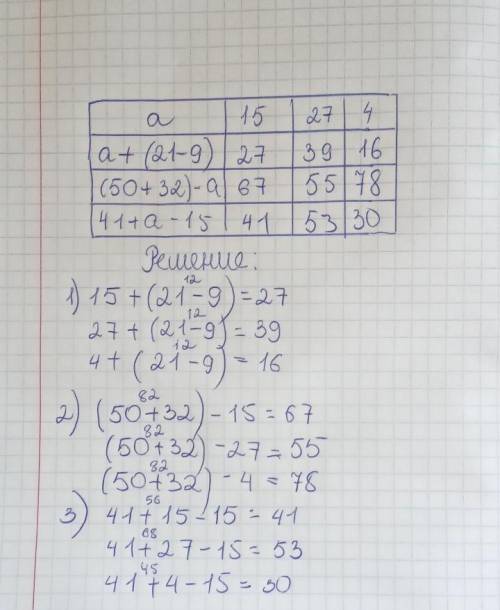 a 15 27 4
a + (21-9) 27 39 16
(50+32)-a 67 55 78
41+a-15 41 53 30
Решение:
12
1) 15 + (21-9) = 27
12
27 + (21-9) = 39
12
4 + (21-9) = 16
82
2) (50+32) - 15 = 67
82
(50+32) - 27 = 55
82
(50+32) - 4 = 78
56
3) 41 + 15 - 15 = 41
68
41 + 27 - 15 = 53
45
41 + 4 - 15 = 30